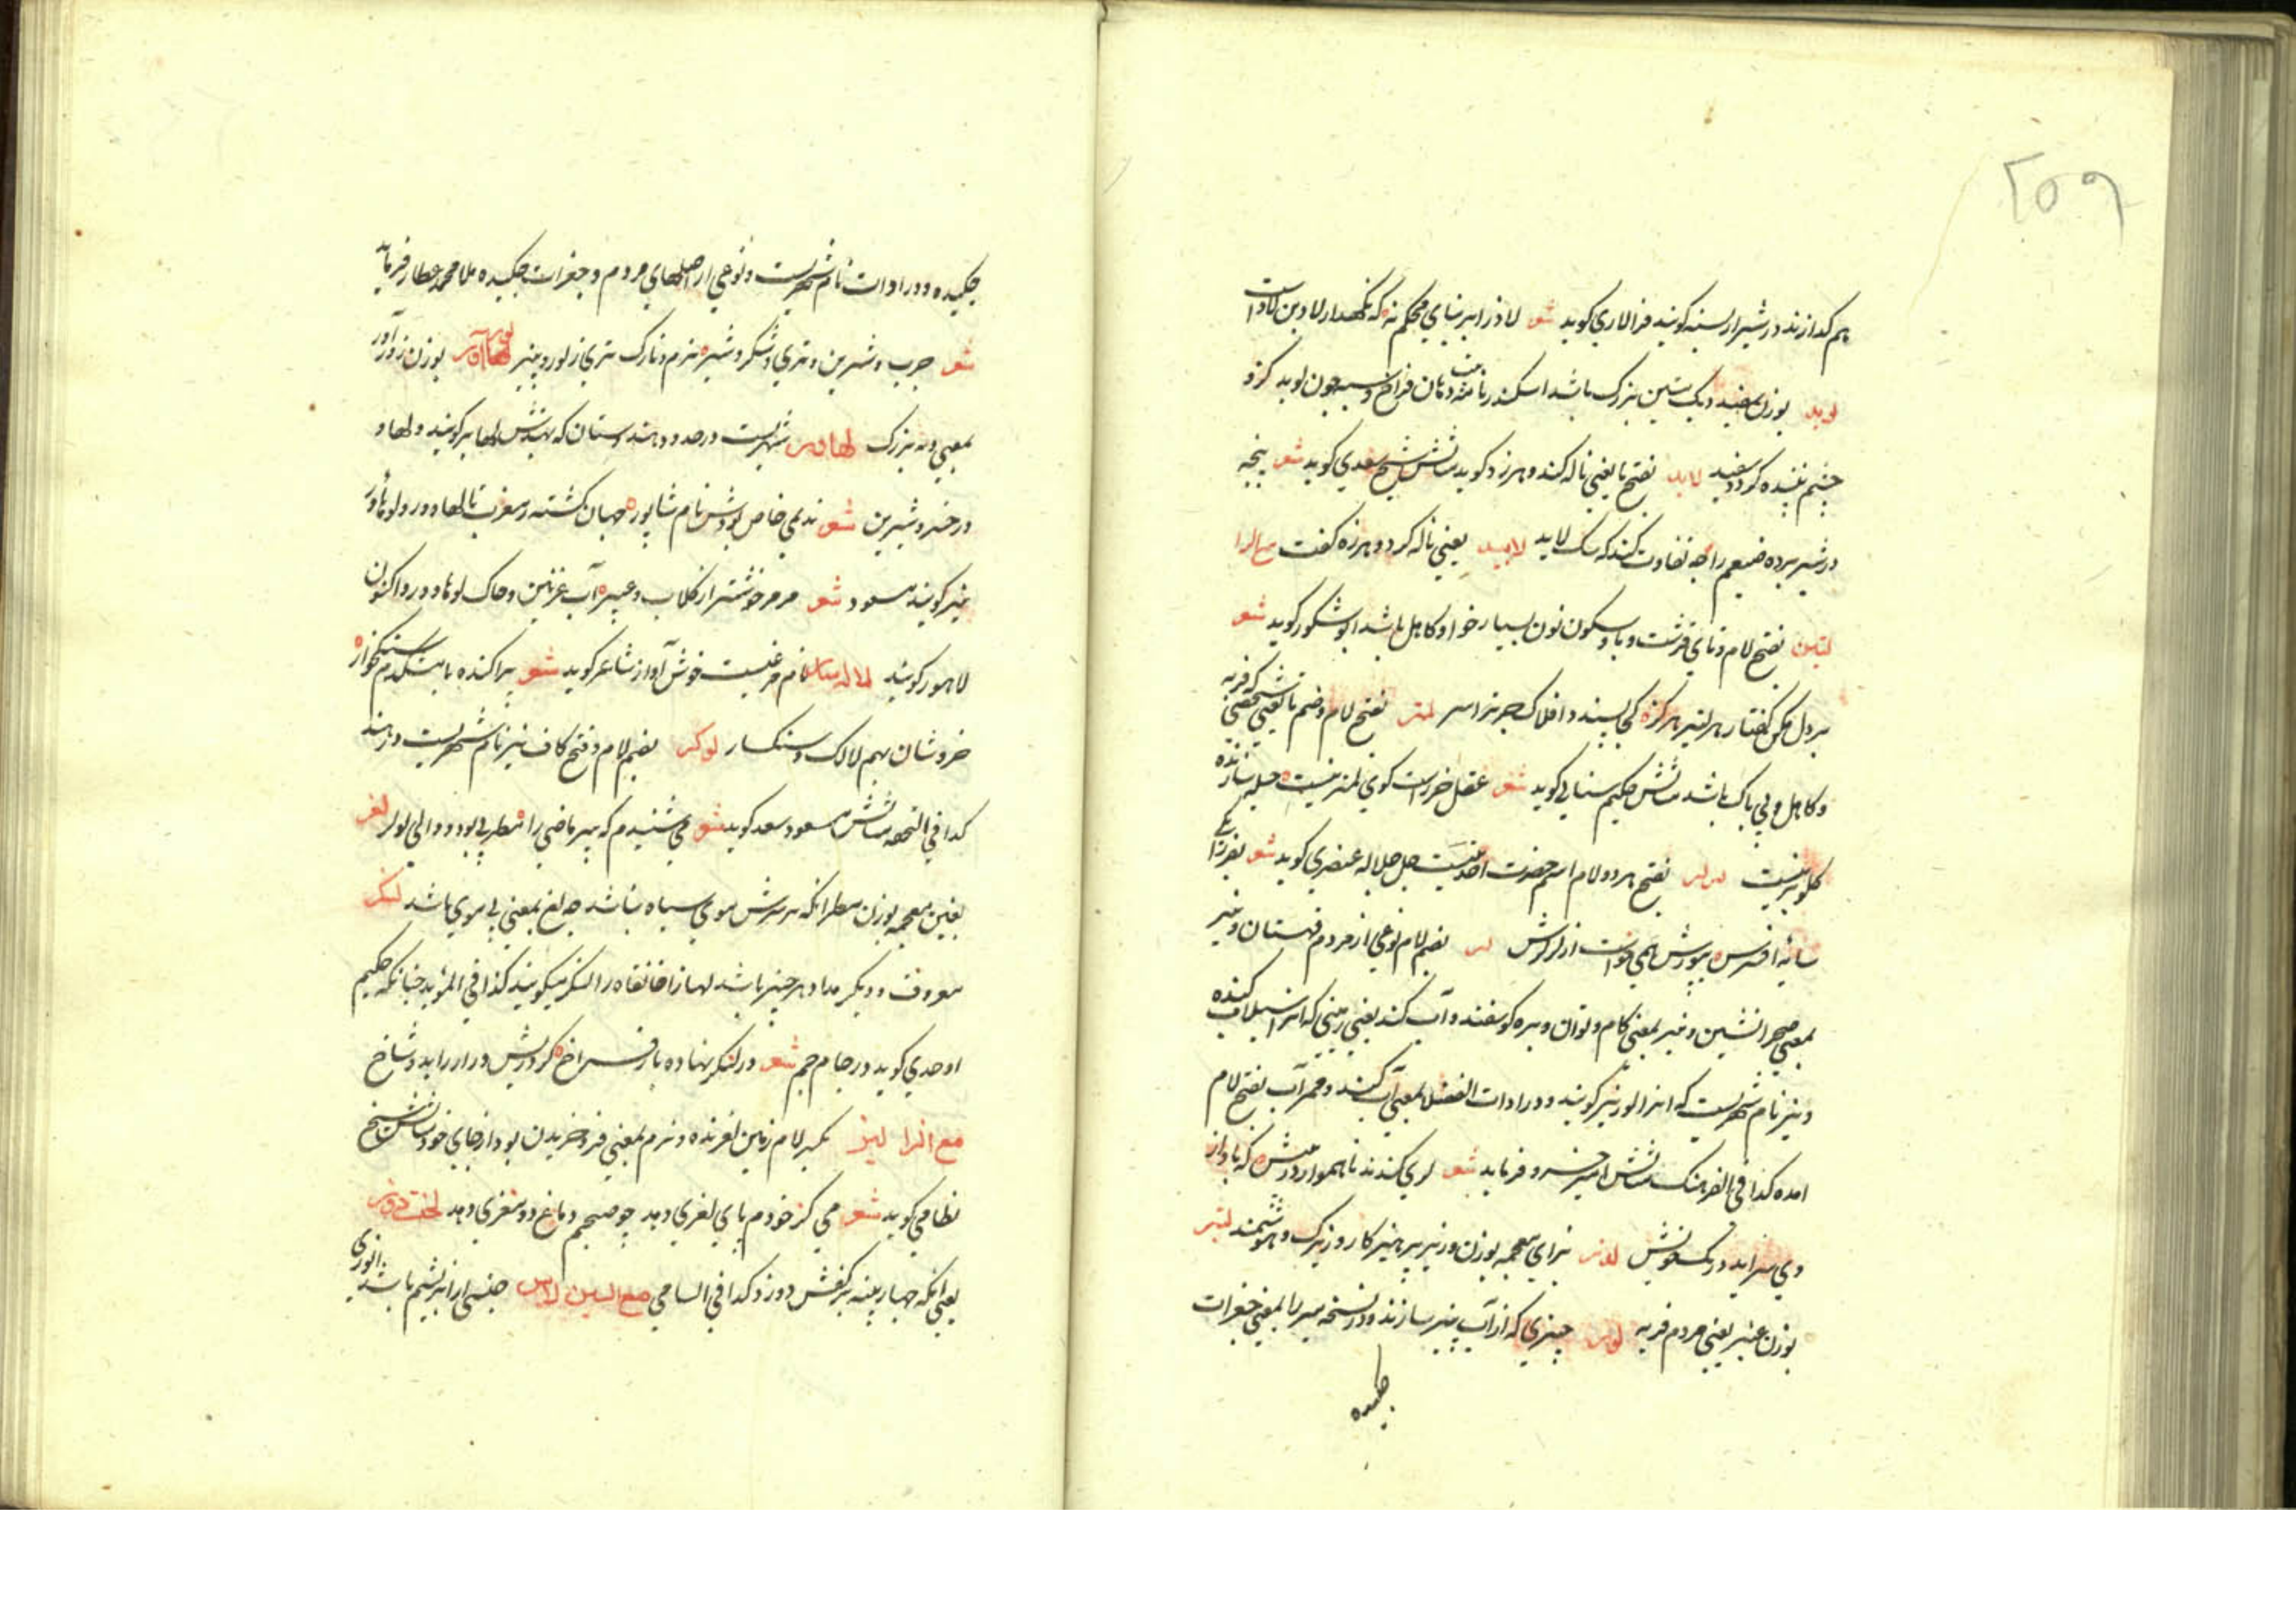 ۲۵۹
هم گدازند در شیراز لسنه گویند فرالاری گوید شعر لاد را بر بنای محکم نه که نگهدار لاد بن لادست
لوید بوزن سفید دیک مسین بزرگ باشد اسکندرنامه دهان فراخ و سیه چون لوید کزو
چشم بیننده کردد سفید لاید بفتح یا یعنی ناله کند و هرزه گوید مثالش شیخ سعدی گوید شعر پنجه
در شیر برده ضیغم را چه تفاوت کند که سک لاید لایید یعنی ناله کرد و هرزه گفت مع الرا
لتبر بفتح لام و تای قرشت و با و سکون نون بسیار خوار و کاهل باشد ابو شکور گوید شعر
بر دل مکن گفتار هر لتبر هرگز کی پسندد افلاک جز نر اسر لمتر بفتح لام و ضم تا یعنی شخصی که فربه
و کاهل و بی باک باشد مثالش حکیم سنایی گوید شعر عقل خر است گوی لمتر نیست حیله سازنده
گلوبر نیست لرلر بفتح هر دو لام اسم حضرت احدیت جل جلاله عنصری گوید شعر بفر
سایه افسرس بپورش همی خواست از لرلرش لر بضم لام نوعی از مردم قهستان و نیز
بمعنی صحرانشین و نیز بمعنی کام و توان و بره گوسفند و آب کند یعنی زمینی که انرا سیلاب کنده
و نیز نام شهریست که انرا لور نیز گویند و در ادات الفضلا بمعنی آب کند و ممر آب بفتح لام
امده کذا فی الفرهنگ مثالش امیر خسرو فرماید شعر لری کندند ناهموار در پیش که باد از
وی سراید در تک خویش لوزر بزای معجمه بوزن وزیر پرهیزکار و زیرک و هوشمند لتبر
بوزن عنبر یعنی مردم فربه لور چیزی که از آب پنیر سازند و در نسخه میرزا بمعنی جغرات
چکیده
چکیده و در ادات نام شهریست و نوعی از اصلهای مردم و جغرات چکیده ملا محمد عطار فرماید
شعر چرب و شیرین و تری و شکر و شیره نرم و نازک تری ز لور و پنیر لهاآور بوزن زورآور
بمعنی دنبه بزرگ لهاور شهریست در حدود هندوستان که بهندش لهابر گویند و لهاو
در خسرو شیرین شعر ندیمی خاص بودش نام شاپور جهان گشته ز مغرب تا لهاوور و لوهاور
نیز گویند مسعود شعر مر مر خوشتر از گلاب و عبیر آب غزنین و خاک لوهاوور و اکنون
لاهور گویند لاله سار نام مرغیست خوش آواز شاعر گوید شعر پراکنده با مشکدم سنگخوار
خروشان بهم لالک و سنکسار لوکر بضم لام و فتح کاف نیز نام شهریست در هند
کذا فی التحفه مثالش مسعود سعد گوید شعر می شنیدم که میر ماضی را مطربی بود و والی لوکر لغر
بغین معجمه بوزن سطر انکه بر سرش موی سیاه نباشد چه لغ بمعنی بی موی باشد لنگر
معروف و دیگر مدار هر چیز باشد لهذا خانقاه را لنگر میگویند کذا فی المؤید چنانکه حکیم
اوحدی گوید در جام جم شعر در لنگر نهاده باز فراخ کرد ریش دراز را بدو شاخ
مع الزا لیز بکسر لام زمین لغزنده و نرم بمعنی فرو خزیدن بود از جای خود مثالش شیخ
نظامی گوید شعر می کز خودم پای لغزی دهد چو صبحم دماغ دو مغزی دهد لخت دوز
یعنی انکه جبا رپینه بر کفش دوزد کذا فی السامی مع السین لاس جنسی از ابریشم باشد انوری